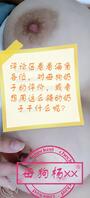 评论区看看海角
各位，对母狗奶
子的评价，或者
想用这么骚的奶
子干什么呢？
母狗杨xx